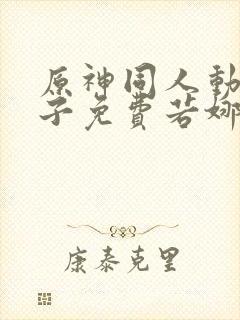 原神同人動
子免費若娜
康泰克里